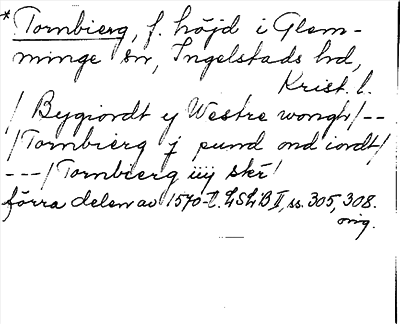 * Tornbierg, f. höjd i Glem-
minge sn, Ingelstads hd,
Krist. l.
/ Bygiordt y Westre wongh/--
/Tornbierg j pund ond iordt/
---/Tornbierg iiij skr/
förra delen av 1570-t. LSLB II, ss. 305, 308.
orig.